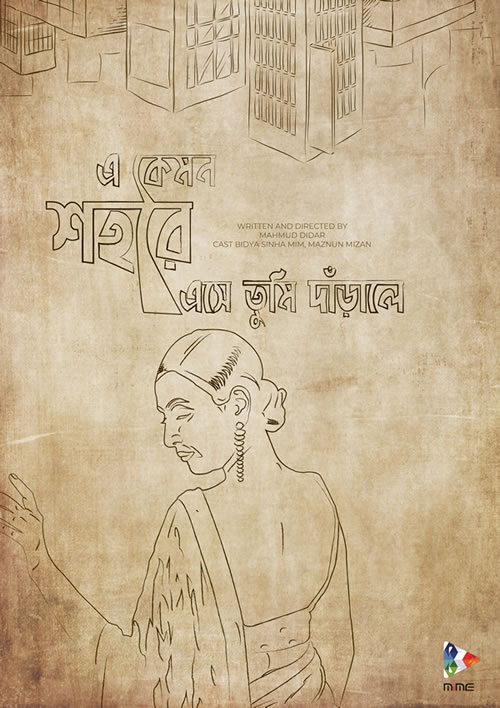 এ কেমন
শহরে
WRITTEN AND DIRECTED BY
MAHMUD DIDAR
CAST BIDYA SINHA MIM, MAZNUN MIZAN
এসে তুমি দাঁড়ালে
MIME